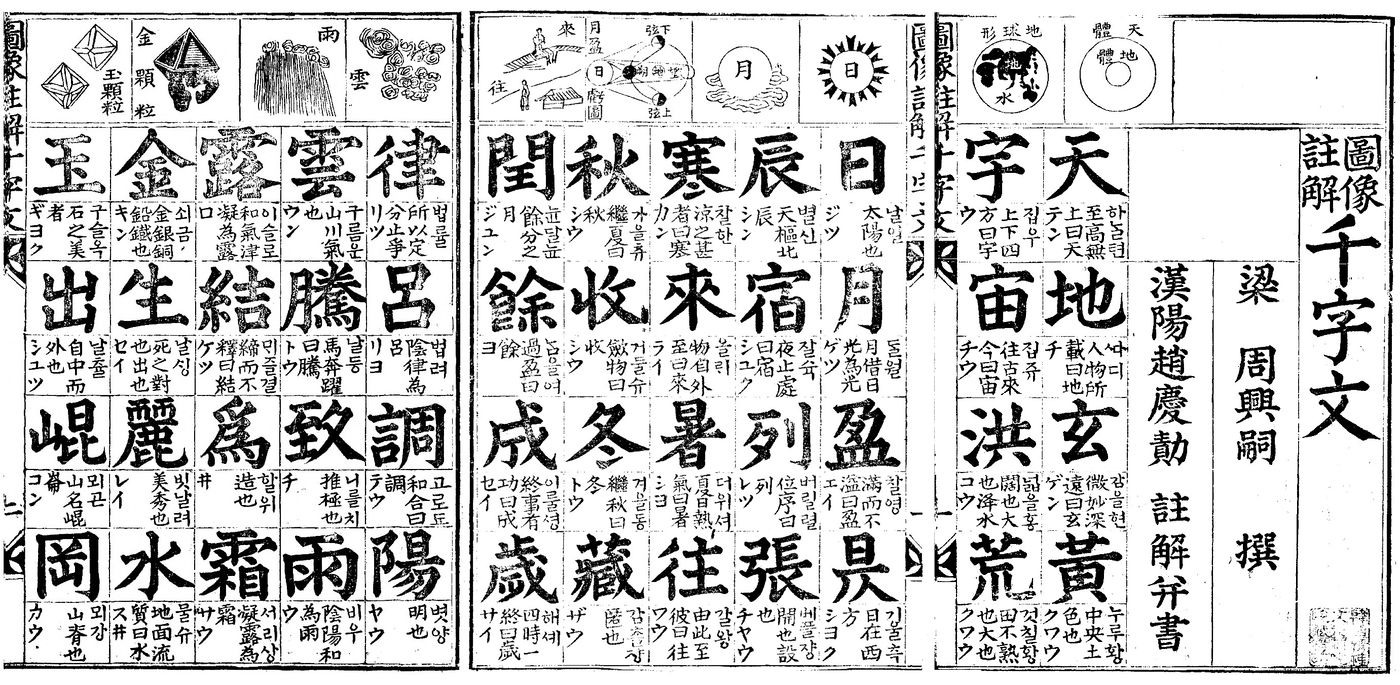 圖像
註解
千字文
梁 周興嗣 撰
漢陽趙慶勣 註解幷書
天體
地體
地球形
地
水
天
하날텬
至高無
上曰天
テン
地
ᄯᅡ디
人物所
載曰地
チ
玄
감을현
微妙深
遠曰玄
ゲン
黃
누루황
中央土
色也
クワウ
宇
집우
上下四
方曰宇
ウ
宙
집쥬
往古來
今曰宙
チウ
洪
넓을홍
闊也大
也洚水
コウ
荒
것칠황
田不熟
也大也
クワウ
圖像註解千字文
一
日
月
月盈
虧圖
日
弦下
弦上
望
朔
來
往
日
날일
太陽也
ジツ
月
ᄃᆞᆯ월
月借日
光為光
ゲツ
盈
찰영
滿而不
溢曰盈
エイ
昃
기울측
日在西
方
シヨク
辰
별신
天樞北
辰
シン
宿
잘슉
夜止處
曰宿
シユク
列
버릴렬
位序曰
列
レツ
張
베플쟝
開也設
也
チヤウ
寒
찰한
涼之甚
者曰寒
カン
來
올ᄅᆡ
物自外
至曰來
ライ
暑
더위셔
夏日熱
氣曰暑
シヨ
往
갈왕
由此至
彼曰往
ワウ
秋
가을츄
繼夏曰
秋
シウ
收
거둘슈
斂物曰
收
シウ
冬
겨을동
繼秋曰
冬
トウ
藏
감츌장
匿也
ザウ
閏
윤달윤
餘分之
月
ジユン
餘
남을여
過盈曰
餘
ヨ
成
이룰셩
終事有
功曰成
セイ
歲
해셰
四時一
終曰歲
サイ
雨
雲
金顆粒
玉顆粒
律
법률
所以定
分止爭
リツ
呂
법려
陰律為
呂
リヨ
調
고로됴
和合曰
調
テウ
陽
볏양
明也
ヤウ
雲
구름운
山川氣
也
ウン
騰
날등
馬奔躍
曰騰
トウ
致
니를치
推極也
チ
雨
비우
陰陽和
為雨
ウ
露
이슬로
和氣津
凝為露
ロ
結
ᄆᆡ즐결
締而不
釋曰結
ケツ
爲
할위
造也
井
霜
서리상
凝露為
霜
サウ
金
쇠금
金銀銅
鉛鐵也
キン
生
날싱
死之對
也出也
セイ
麗
빗날려
美秀也
レイ
水
물슈
地面流
質曰水
ス井
玉
구슬옥
石之美
者
ギヨク
出
날츌
自中而
外也
シユツ
崐
뫼곤
山名崐
崙
コン
岡
뫼강
山脊也
カウ
圖像註解千字文
二